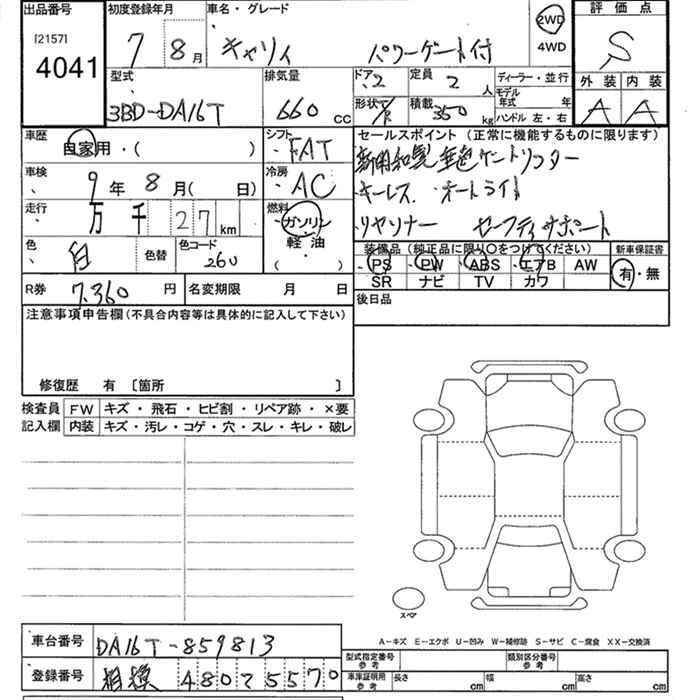 出品番号
[2157]
4041
初度登録年月
7 8月
車名・グレード
キャリィ パワーゲート付
2WD
4WD
評価点
S
外装 内装
A A
型式
3BD-DA16T
排気量
660 CC
ドア 2
形状
定員 2 人
積載 350 kg
ディーラー・並行
モデル年式 年
ハンドル 左・右
車歴
自家用・( )
シフト
FAT
セールスポイント (正常に機能するものに限ります)
キーレス オートライト
リヤソナー セーフティサポート
車検
9年 8月( 日)
冷房
AC
走行
万 千 27 km
燃料
ガソリン
軽油
( )
色
白
色替
色コード
260
装備品 (純正品に限り○をつけてください)
PS PW ABS エアB AW
SR ナビ TV カワ
新車保証書
有・無
R券 7,360 円
名変期限 月 日
後日品
注意事項申告欄(不具合内容等は具体的に記入して下さい)
修復歴 有 [箇所 ]
検査員記入欄
FW キズ・飛石・ヒビ割・リペア跡・×要
内装 キズ・汚レ・コゲ・穴・スレ・キレ・破レ
スペア
A-キズ E-エクボ U-凹み W-補修跡 S-サビ C-腐食 XX-交換済
車台番号 DA16T-859813
登録番号 相模 480 2 5570
型式指定番号 参考
類別区分番号 参考
車庫証明用 参考
長さ cm 幅 cm 高さ cm